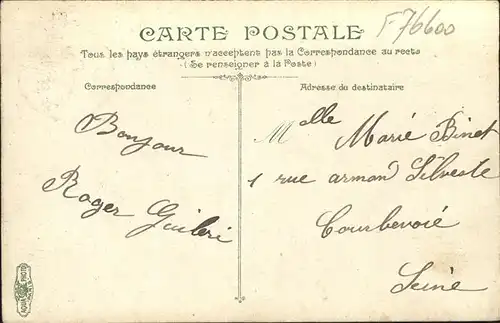 CARTE POSTALE
F76600
Tous les pays étrangers n'acceptent pas la Correspondance au recto
(Se renseigner à la Poste)
Correspondance
Adresse du destinataire
Bonjour
Roger
Melle Marie Binet
1 rue armand Silveste
Courbevoie
Seine